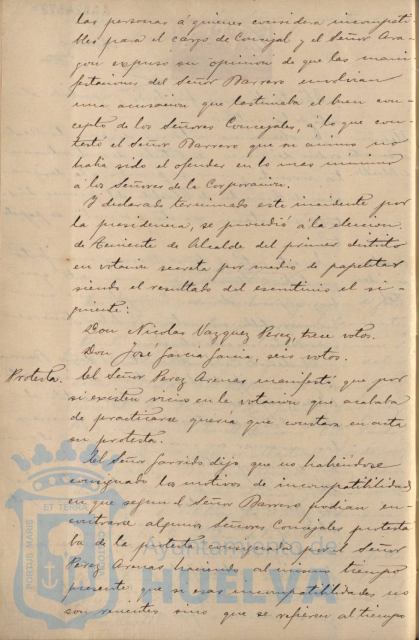 las personas á quienes considera incompati-
bles para el cargo de Concejal y el Señor Ara-
gon expuso su opinion de que las mani-
festaciones del Señor Barrero envolvian
una acusacion que lastimaba el buen con-
cepto de los Señores Concejales, á lo que con-
testó el Señor Barrero que su animo no
habia sido el ofender en lo mas minimo
á los Señores de la Corporacion.
Y declarado terminado este incidente por
la presidencia, se procedió á la eleccion
de Teniente de Alcalde del primer distrito
en votacion secreta por medio de papeletas
siendo el resultado del escrutinio el si-
guiente:
Don Nicolas Vazquez Perez, trece votos.
Don José Garcia Garcia, seis votos.
Protesta. El Señor Perez Arenas manifestó que por
si existen vicios en la votacion que acababa
de practicarse queria que constara en acta
su protesta.
El Señor Garrido dijo que no habiendose
consignado los motivos de incompatibilidad
en que segun el Señor Barrero podian en-
contrarse algunos Señores Concejales protesta
ba de la protesta consignada por el Señor
Perez Arenas haciendo al mismo tiempo
presente que si esas incompatibilidades no
son recientes sino que se refieren al tiempo
PORTUS MARIS
ET TERRAE
CUSTODIA
Ayuntamiento de
HUELVA